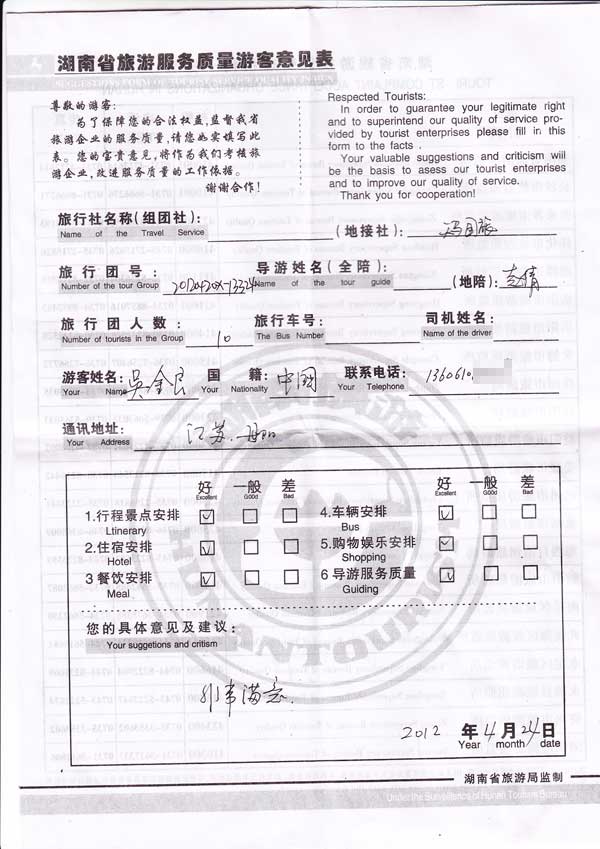 湖南省旅游服务质量游客意见表
尊敬的游客:
为了保障您的合法权益,监督我省
旅游企业的服务质量,请您如实填写此
表。您的宝贵意见,将作为我们考核旅
游企业,改进服务质量的工作依据。
谢谢合作!
Respected Tourists:
In order to guarantee your legitimate right
and to superintend our quality of service pro-
vided by tourist enterprises please fill in this
form to the facts .
Your valuable suggestions and criticism will
be the basis to asess our tourist enterprises
and to improve our quality of service.
Thank you for cooperation!
旅行社名称(组团社): (地接社):
Name of the Travel Service
旅行团号: 导游姓名(全陪) (地陪):
Number of the tour Group Name of the tour guide
旅行团人数: 10 旅行车号: 司机姓名:
Number of tourists in the Group The Bus Number Name of the driver
游客姓名: 吴金民 国籍: 中国 联系电话: 1360610
Your Name Your Nationality Your Telephone
通讯地址: 江苏.丹阳
Your Address
好 一般 差 好 一般 差
Excellent Good Bad Excellent Good Bad
1.行程景点安排 4.车辆安排
Ltinerary Bus
2.住宿安排 5.购物娱乐安排
Hotel Shopping
3 餐饮安排 6 导游服务质量
Meal Guiding
您的具体意见及建议:
Your suggetions and critism
非常满意.
2012 年 4 月 24 日
Year month date
湖南省旅游局监制
Under the Surveillance of Hunan Tourism Bureau
HUNANTOURISM